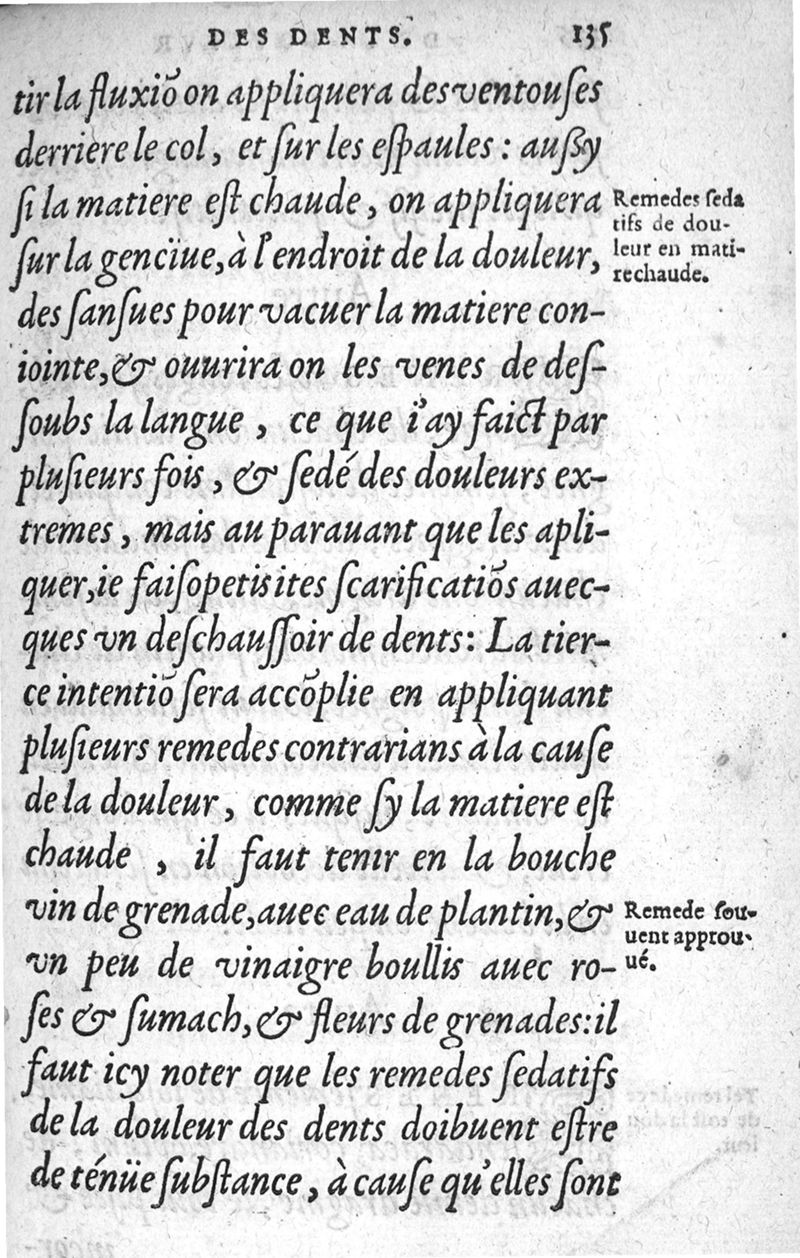 DES DENTS. 135
tir la fluxiõ on appliquera des ventouſes
derriere le col, et ſur les eſpaules : auſſy
ſi la matiere eſt chaude, on appliquera
ſur la gencïue, à l'endroit de la douleur,
des ſanſues pour vacuer la matiere con-
iointe, & ouurira on les venes de deſ-
ſoubs la langue , ce que i'ay faict par
pluſieurs fois , & ſedé des douleurs ex-
tremes , mais au parauant que les apli-
quer, ie faiſopetisites ſcarificatiõs auec-
ques vn deſchauſſoir de dents: La tier-
ce intentiõ ſera accõplie en appliquant
pluſieurs remedes contrarians à la cauſe
de la douleur, comme ſy la matiere eſt
chaude , il faut tenir en la bouche
vin de grenade, auec eau de plantin, &
vn peu de vinaigre boullis auec ro-
ſes & ſumach, & fleurs de grenades: il
faut icy noter que les remedes ſedatifs
de la douleur des dents doibuent eſtre
de ténüe ſubſtance, à cauſe qu'elles ſont
Remedes ſeda
tifs de dou-
leur en mati-
re chaude.
Remede ſou-
uent approu-
ué.